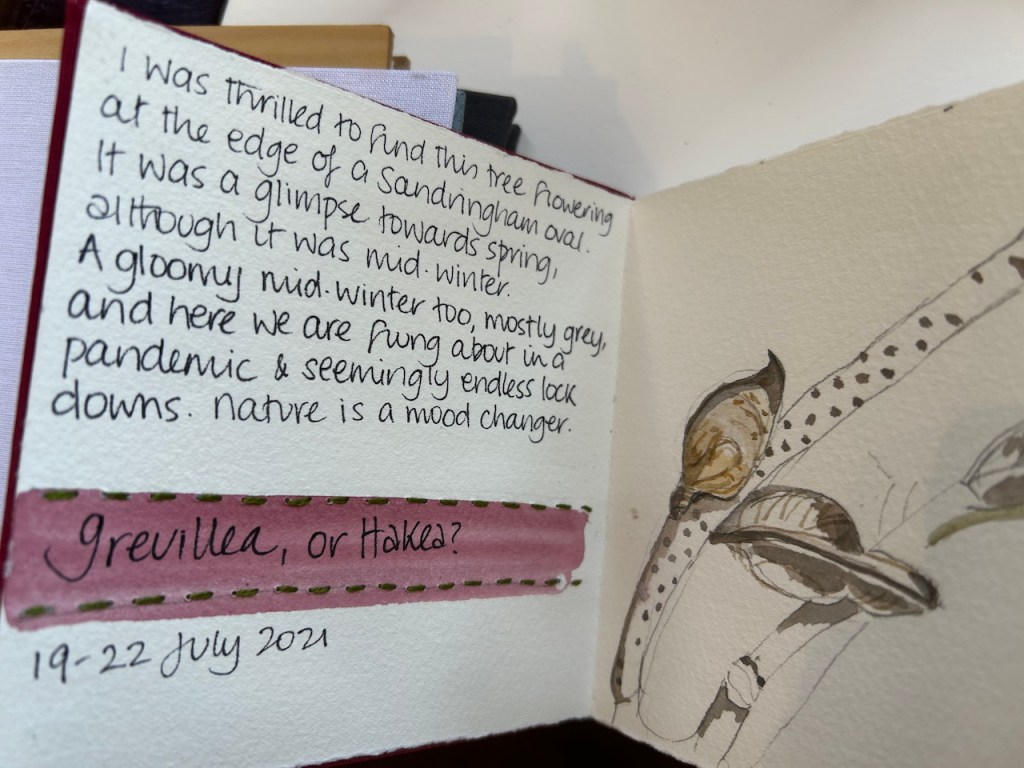 I was thrilled to find this tree flowering
at the edge of a Sandringham oval.
It was a glimpse towards spring,
although it was mid-winter.
A gloomy mid-winter too, mostly grey,
and here we are flung about in a
pandemic & seemingly endless lock
downs. Nature is a mood changer.
Grevillea, or Hakea?
19-22 July 2021